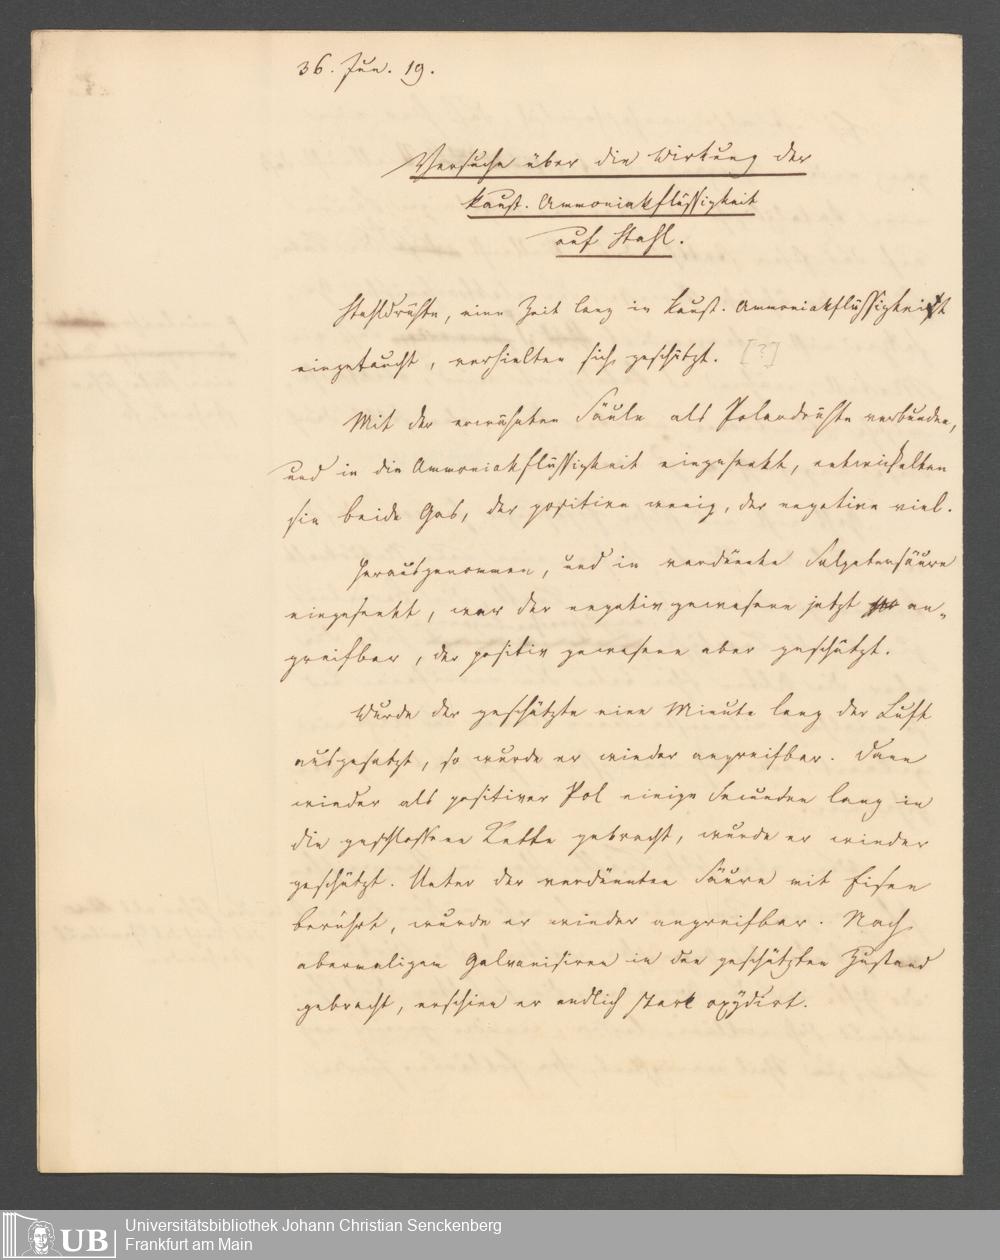 36. Jun. 19.
Versuche über die Wirkung der
kaust. Ammoniakflüssigkeit
auf Stahl.
Stahldrähte, eine Zeit lang in kaust. Ammoniakflüssigkeit
eingetaucht, verhielten sich geschützt. [?]
Mit der erwähnten Säule als Polardrähte verbunden,
und in die Ammoniakflüssigkeit eingesenkt, entwickelten
sie beide Gas, der positive wenig, der negative viel.
Herausgenommen, und in verdünnte Salpetersäure
eingesenkt, war der negativ gewesene jetzt an-
greifbar, der positiv gewesene aber geschützt.
Wurde der geschützte eine Minute lang der Luft
ausgesetzt, so wurde er wieder angreifbar. Dann
wieder als positiver Pol einige Secunden lang in
die geschlossene Kette gebracht, wurde er wieder
geschützt. Unter der verdünnten Säure mit Eisen
berührt, wurde er wieder angreifbar. Nach
abermaligem Galvanisiren in den geschützten Zustand
gebracht, erschien er endlich stark oxÿdirt.
UB
Universitätsbibliothek Johann Christian Senckenberg
Frankfurt am Main